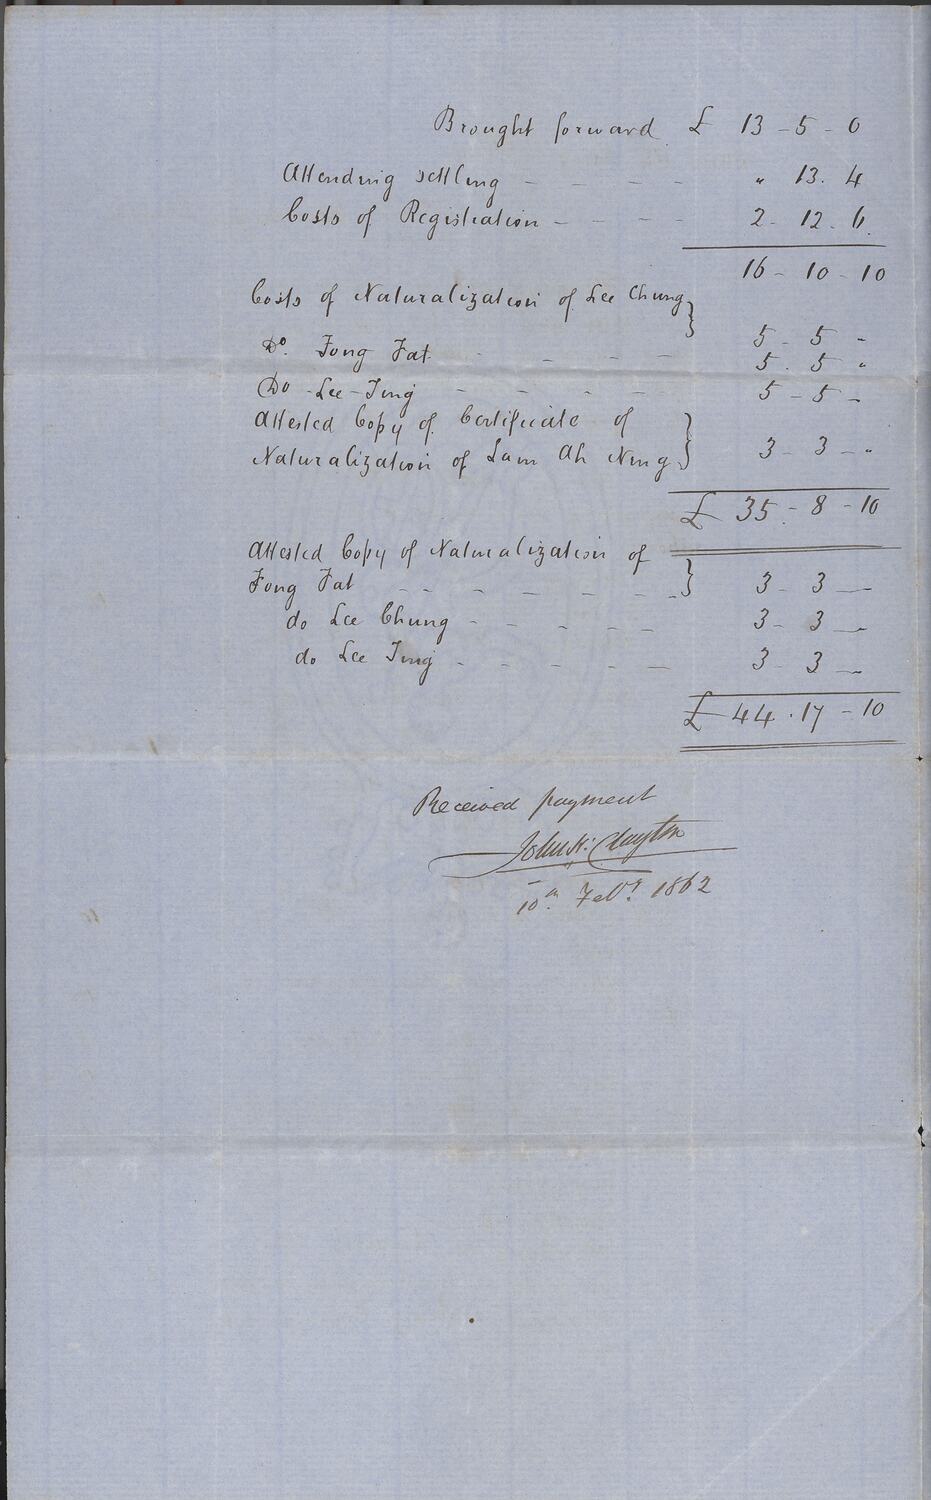 Brought forward £ 13 - 5 - 0
Attending settling - - - - " 13. 4
Costs of Registration - - - - 2 - 12. 6.
16 - 10 - 10
Costs of Naturalization of Lee Chung }
5 - 5 -
Do. Fong Fat - - - - 5. 5 "
Do - Lee - Ting - - - - 5 - 5 -
Attested Copy of Certificate of }
Naturalization of Lam Ah Ning } 3 - 3 - "
£ 35 - 8 - 10
Attested Copy of Naturalization of }
Fong Fat - - - - - - 3 - 3 —
do Lee Chung - - - - - 3 - 3 —
do Lee Ting - - - - - 3 3 —
£ 44 . 17 - 10
Received payment
John H: Clayton
10th Feby. 1862